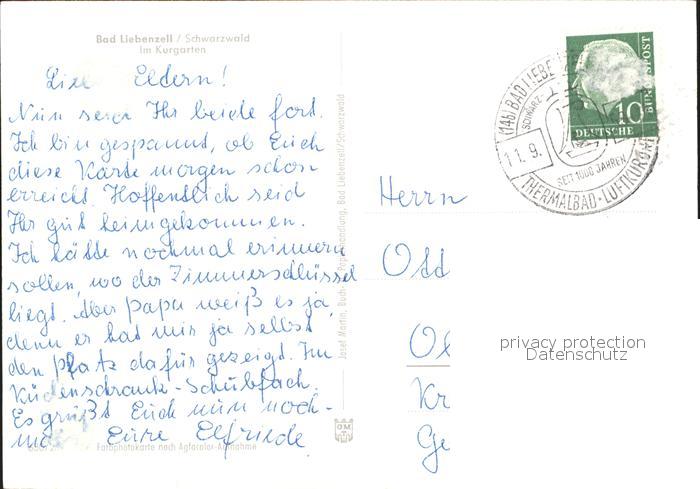 Bad Liebenzell / Schwarzwald
Im Kurgarten
Eltern!
Nun seid Ihr beide fort.
Ich bin gespannt, ob Euch
diese Karte morgen schon
erreicht. Hoffentlich seid
Ihr gut heimgekommen.
Ich hätte nochmal erinnern
sollen, wo der Zimmerschlüssel
liegt. Aber Papa weiß es ja,
denn er hat mir ja selbst
den Platz dafür gezeigt. Im
Küchenschrank-Schubfach.
Es grüßt Euch nun noch-
mal Eure Elfriede
Fotophotokarte nach Agfacolor-Aufnahme
Josef Martin, Buch- Papierhandlung, Bad Liebenzell/Schwarzwald
(14b) BAD LIEBE
SCHWARZ
11.9.
SEIT 1000 JAHREN
THERMALBAD · LUFTKURORT
10
DEUTSCHE
BUNDESPOST
Herrn
Ott
Ol
Kr
Ge
privacy protection
Datenschutz